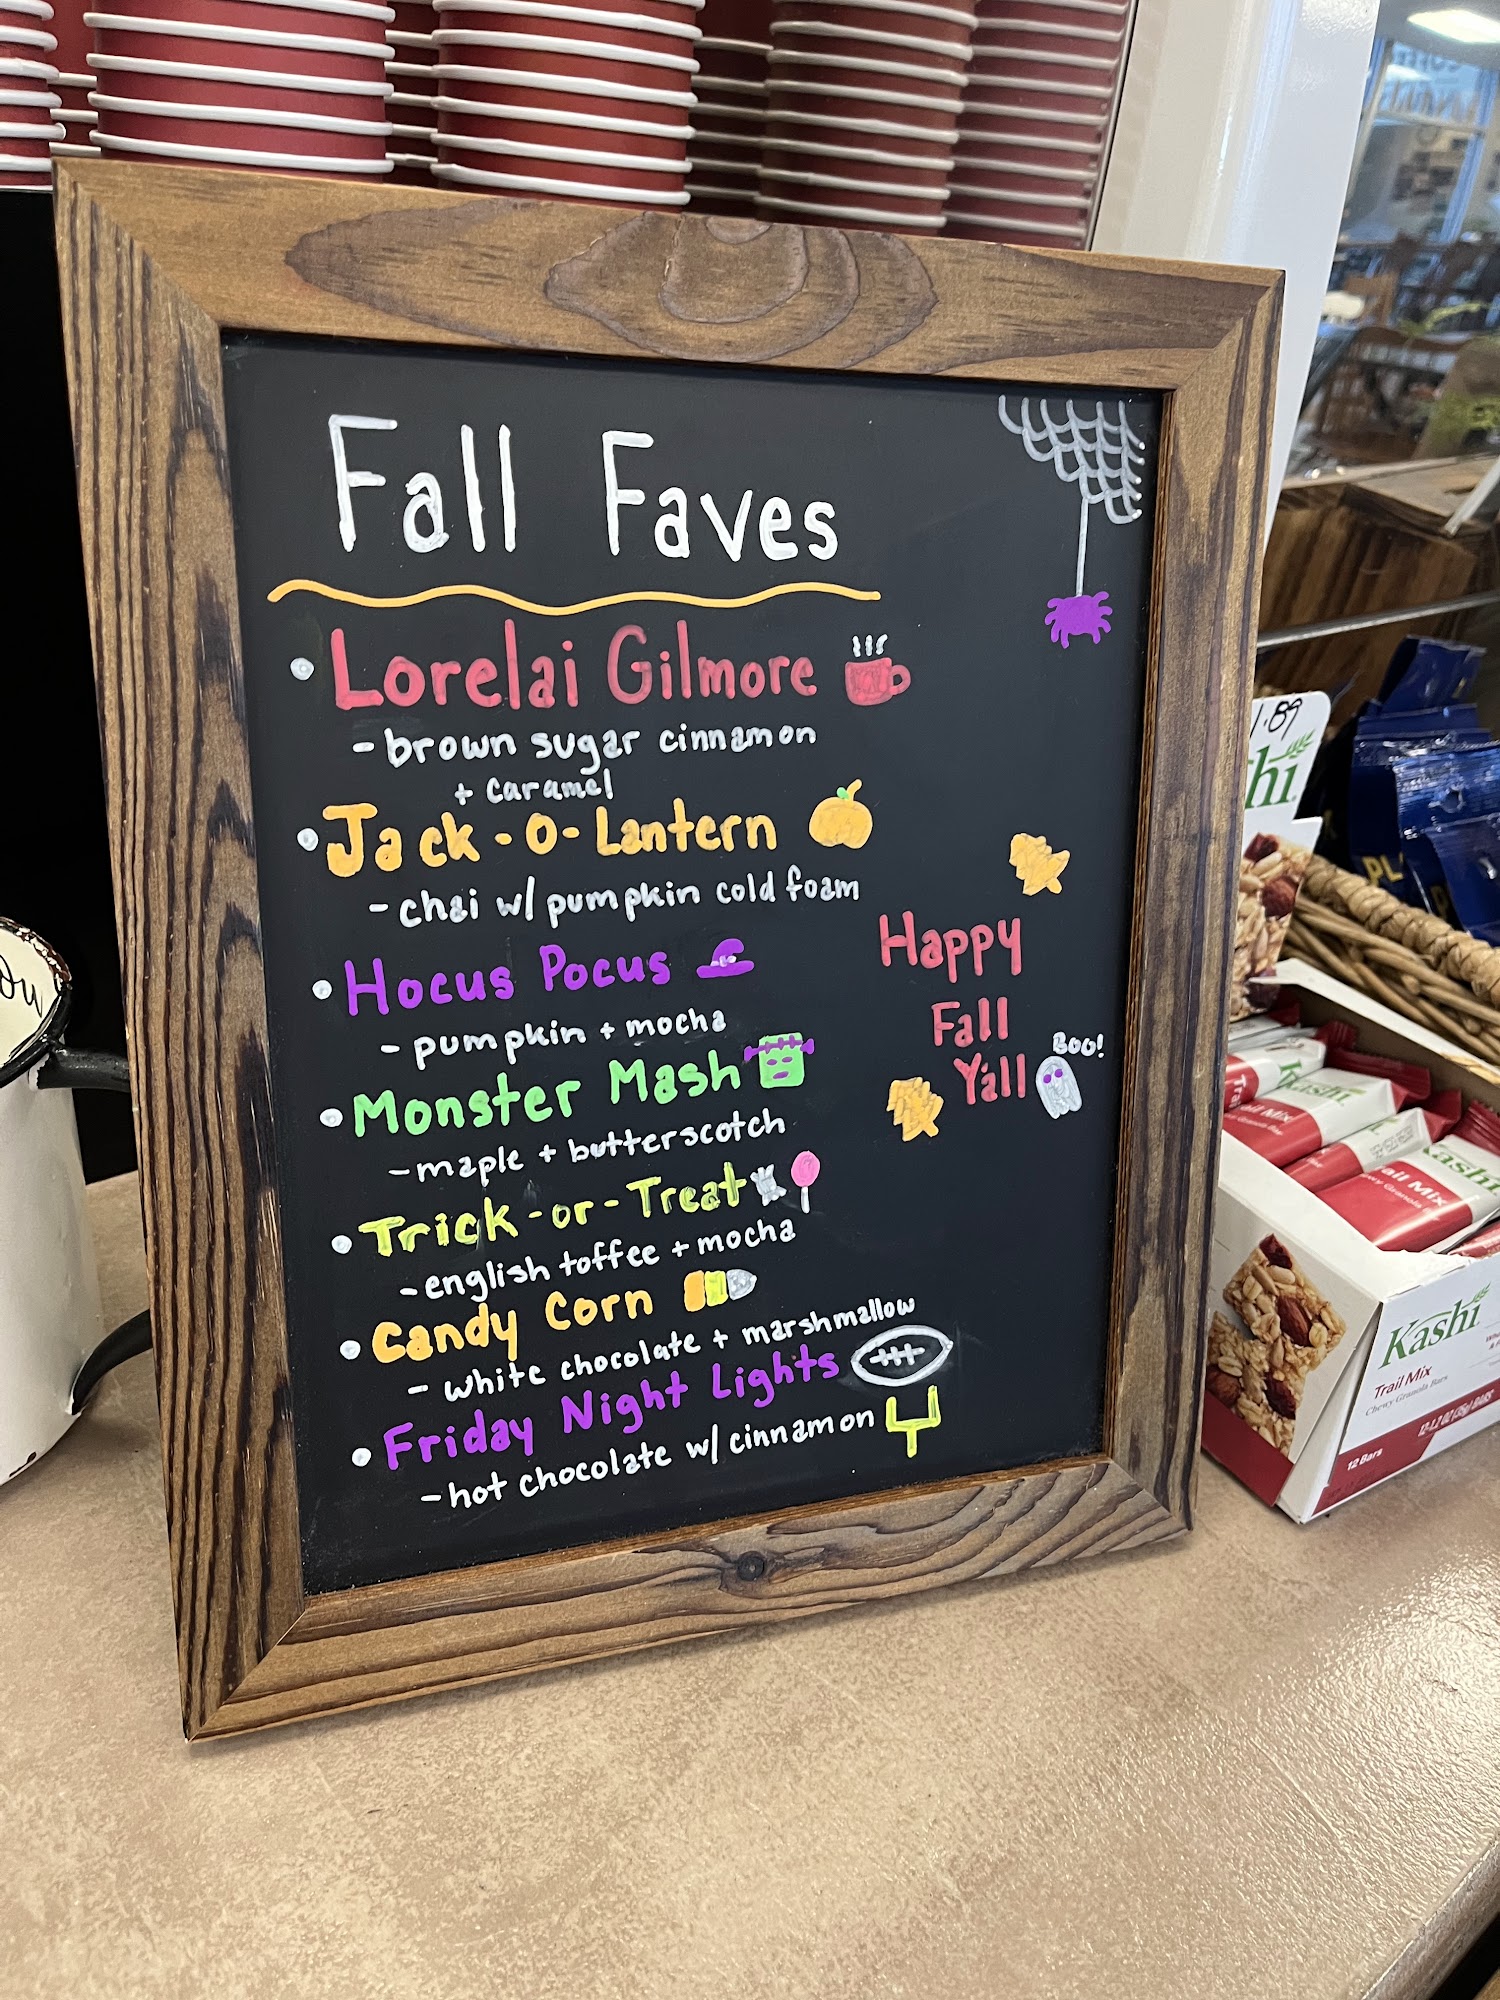 Fall Faves
• Lorelai Gilmore
- brown sugar cinnamon
+ caramel
• Jack-o-Lantern
- chai w/ pumpkin cold foam
• Hocus Pocus
- pumpkin + mocha
• Monster Mash
- maple + butterscotch
• Trick-or-Treat
- english toffee + mocha
• Candy Corn
- white chocolate + marshmallow
• Friday Night Lights
- hot chocolate w/ cinnamon
Happy
Fall
Y'all
Boo!
1.89
Kashi
Trail Mix
Kashi
Trail Mix
Chewy Granola Bars
12 Bars